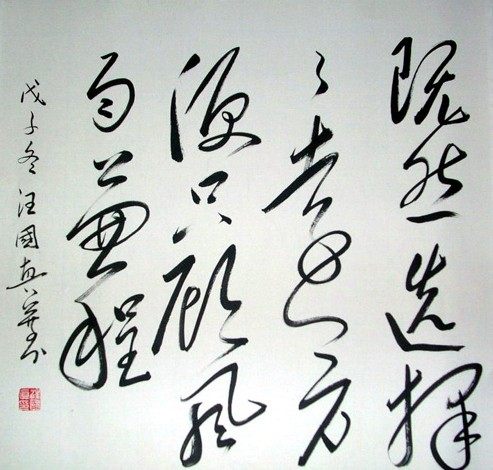 既然选择
了远方
便只顾风
雨兼程
戊子冬汪國真并书